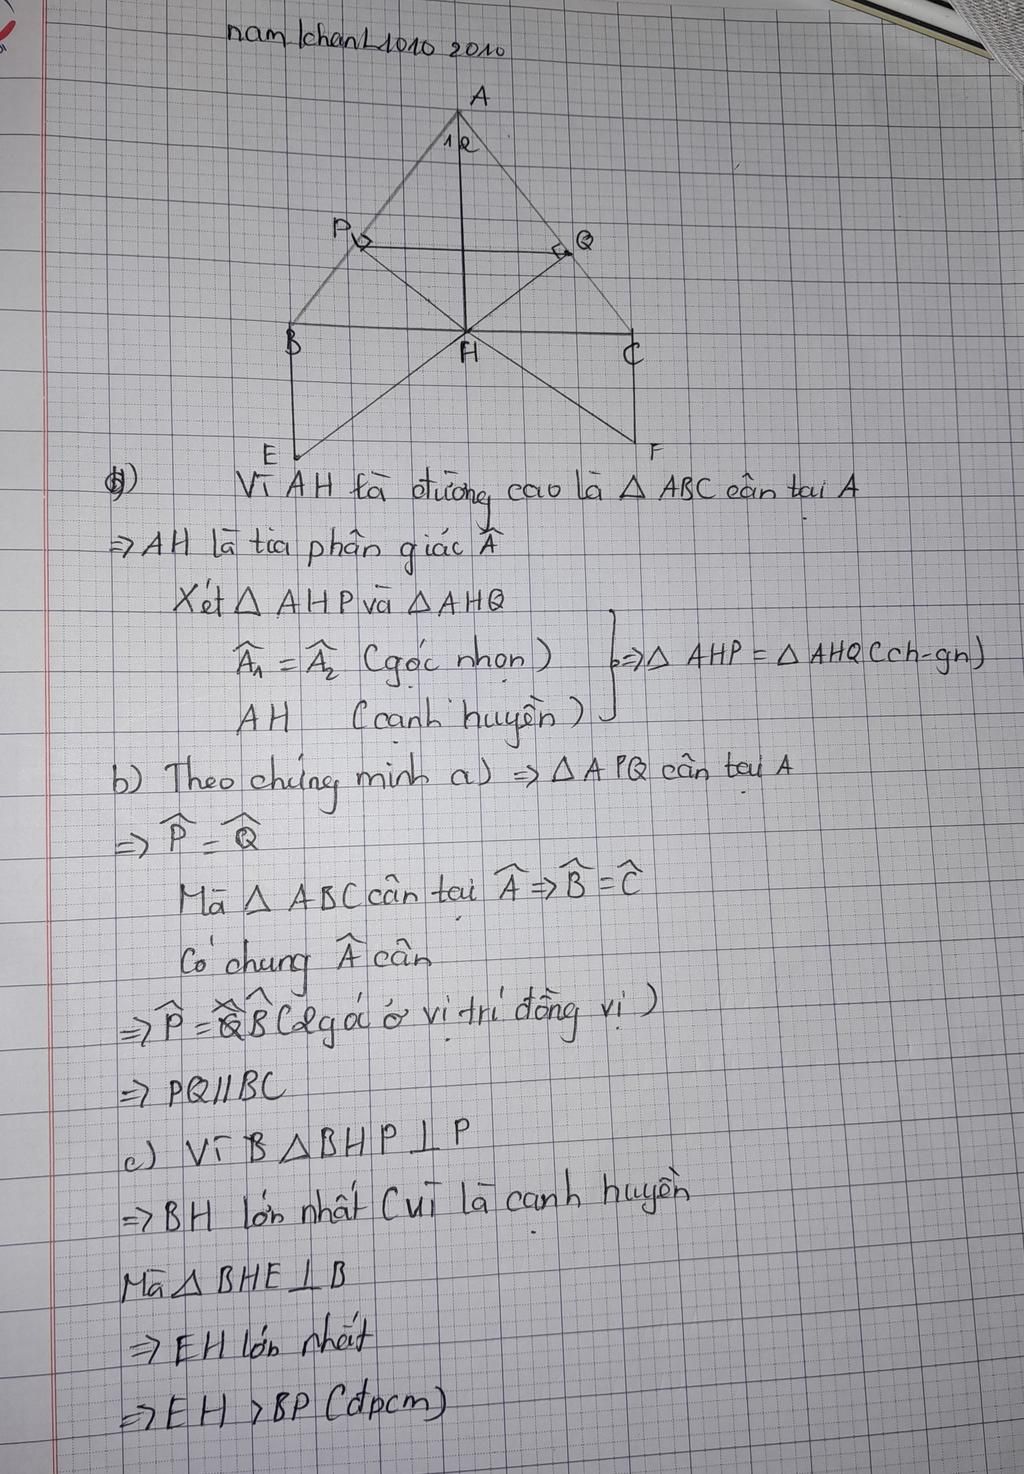 nam khanh 1010 2010
A
1 2
P
Q
B
H
C
E
F
a) Vì AH là đường cao là Δ ABC cân tại A
=> AH là tia phân giác Â
Xét Δ AHP và Δ AHQ
Â1 = Â2 (góc nhọn)
=> Δ AHP = Δ AHQ (ch-gn)
AH (cạnh huyền)
b) Theo chứng minh a) => Δ APQ cân tại A
=> P̂ = Q̂
Mà Δ ABC cân tại Â => B̂ = Ĉ
Có chung Â cân
=> P̂ = B̂ (2 góc ở vị trí đồng vị)
=> PQ // BC
c) Vì Δ BHP ⊥ P
=> BH lớn nhất (vì là cạnh huyền
Mà Δ BHE ⊥ B
=> EH lớn nhất
=> EH > BP (đpcm)